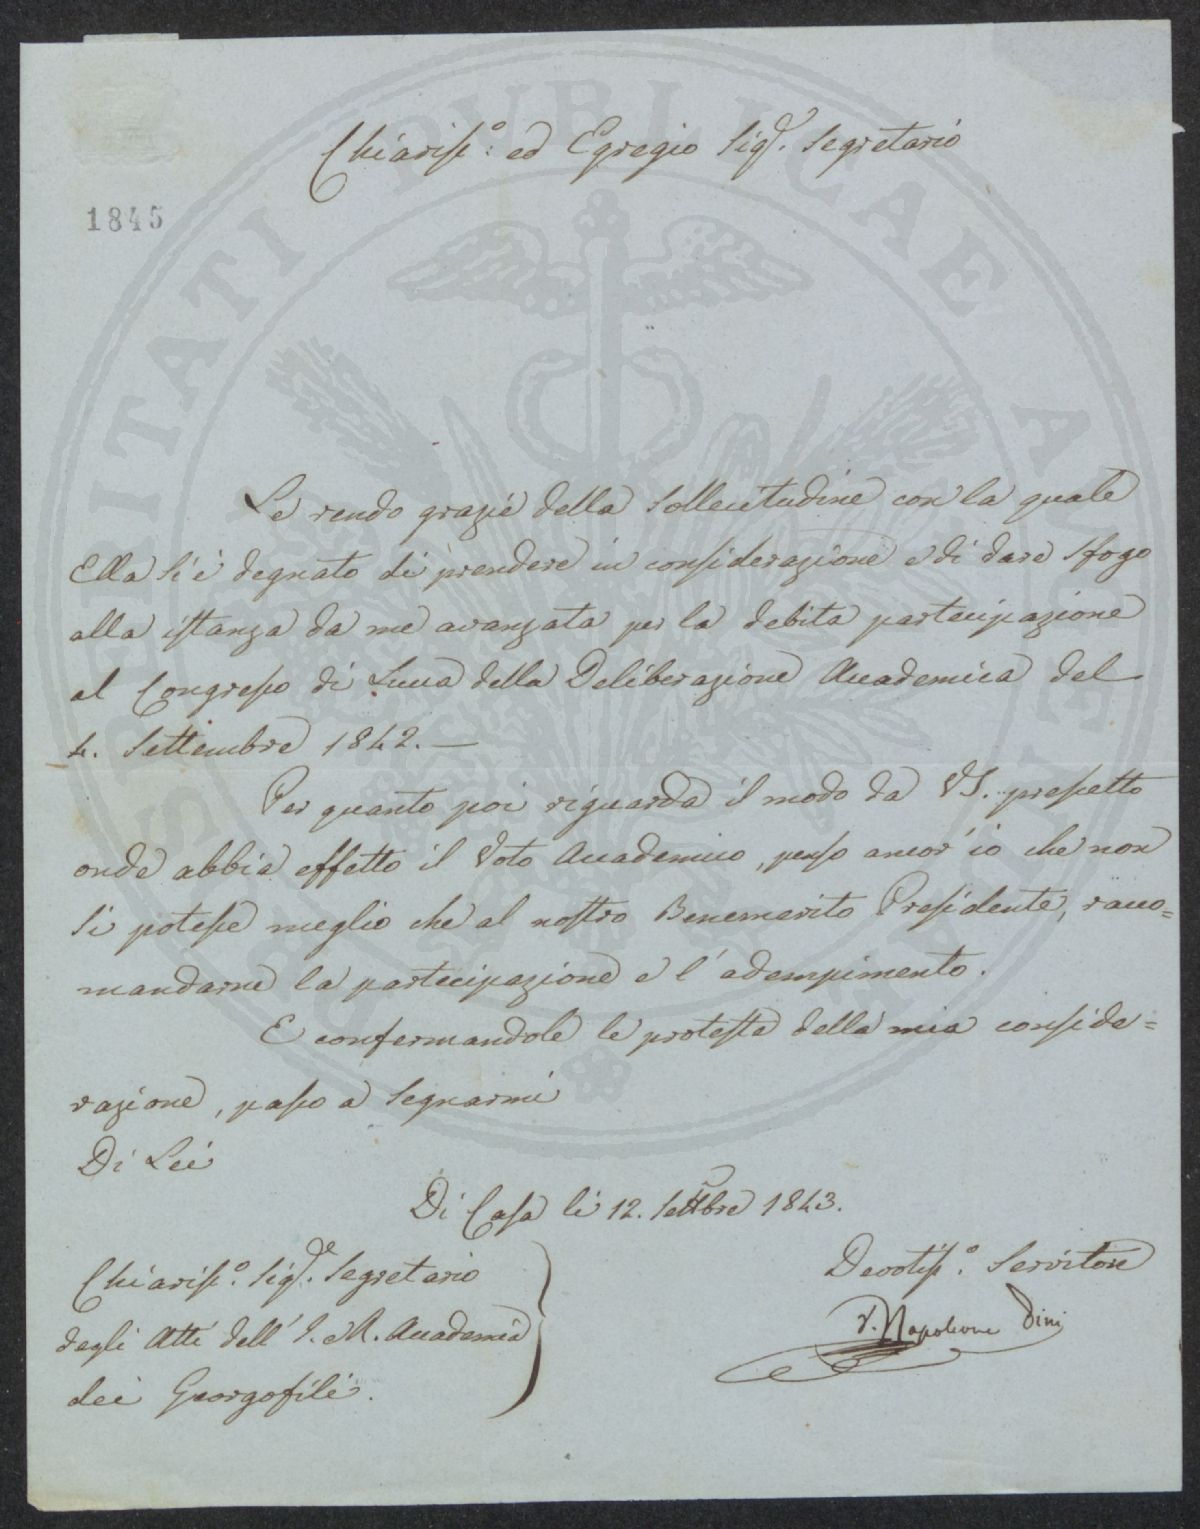 Chiariss.º ed Egregio Sig.e Segretario
1845
Le rendo grazie della sollecitudine con la quale
Ella si è degnato di prendere in considerazione e di dare sfogo
alla istanza da me avanzata per la debita partecipazione
al Congresso di Lucca della Deliberazione Accademica del
4. Settembre 1842. —
Per quanto poi riguarda il modo da VS. prescelto
onde abbia effetto il Voto Accademico, penso ancor' io che non
si potesse meglio che al nostro Benemerito Presidente, racco=
mandarne la partecipazione e l'adempimento.
E confermandole le proteste della mia conside=
razione, passo a segnarmi
Di Lei
Di Casa li 12. Settbre 1843.
Devotiss.º Servitore
Napoleone Pini
Chiariss.º Sig.e Segretario
degli Atti dell' I. e R. Accademia
dei Georgofili.
PROSPERITATI PUBLICAE AUGENDAE